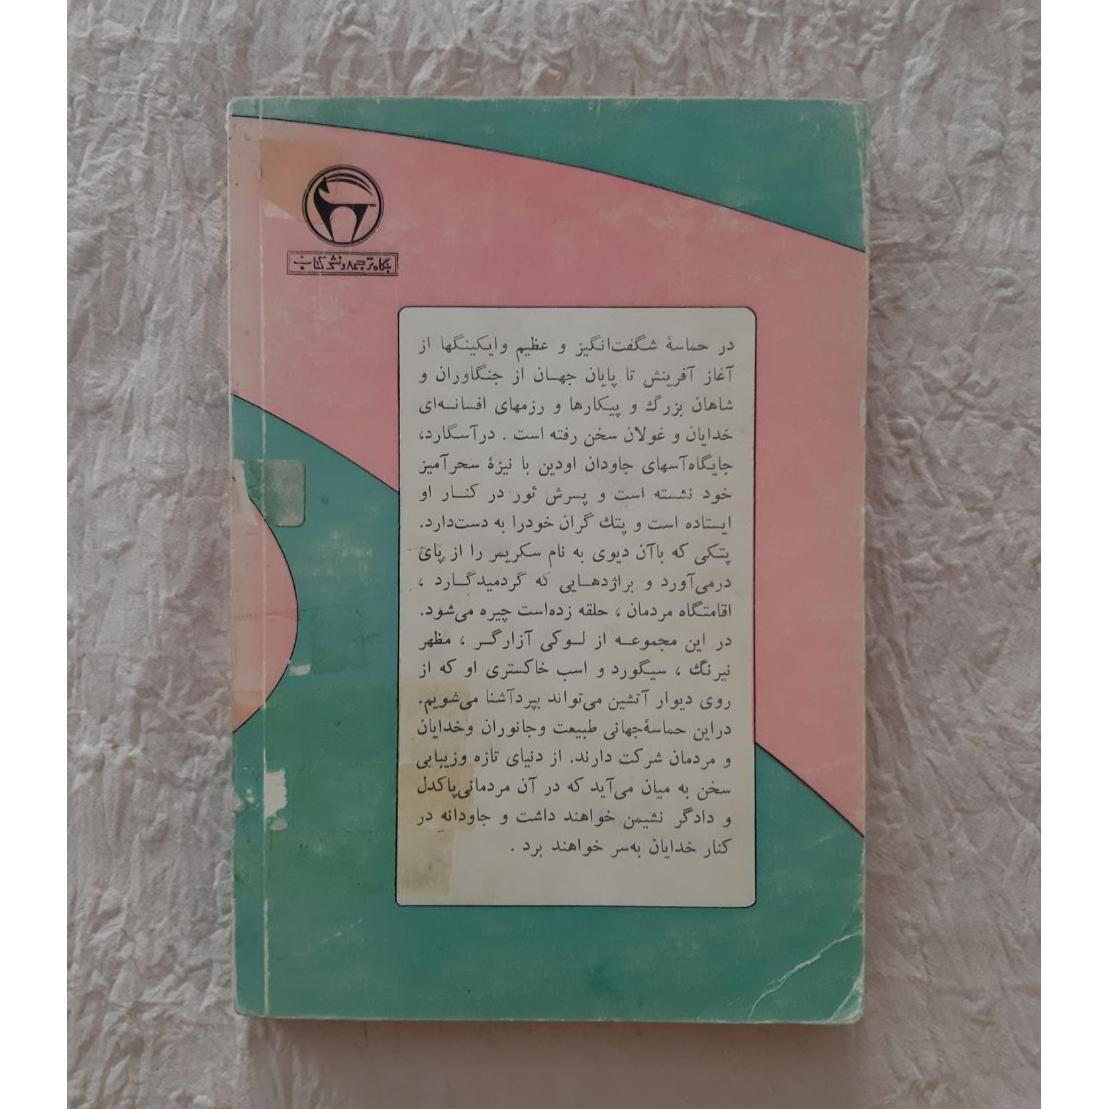 بنگاه ترجمه و نشر کتاب
در حماسهٔ شگفت‌انگیز و عظیم وایکینگها از
آغاز آفرینش تا پایان جهـان از جنگاوران و
شاهان بزرگ و پیکارها و رزمهای افسانه‌ای
خدایان و غولان سخن رفته است . درآسگارد،
جایگاه آسهای جاودان اودین با نیزهٔ سحرآمیز
خود نشسته است و پسرش ثور در کنـار او
ایستاده است و پتك گران خودرا به دست‌دارد.
پتکی که باآن دیوی به نام سکریمر را از پای
درمی‌آورد و براژدهـایی که گردمیدگـارد ،
اقامتگاه مردمان ، حلقه زده‌است چیره می‌شود.
در این مجموعـه از لـوکی آزارگـر ، مظهر
نیرنگ ، سیگورد و اسب خاکستری او که از
روی دیوار آتشین می‌تواند بپردآشنا می‌شویم.
دراین حماسهٔ‌جهانی طبیعت وجانوران وخدایان
و مردمان شرکت دارند. از دنیای تازه وزیبایی
سخن به میان می‌آید که در آن مردمانی‌پاکدل
و دادگر نشیمن خواهند داشت و جاودانه در
کنار خدایان به‌سر خواهند برد .